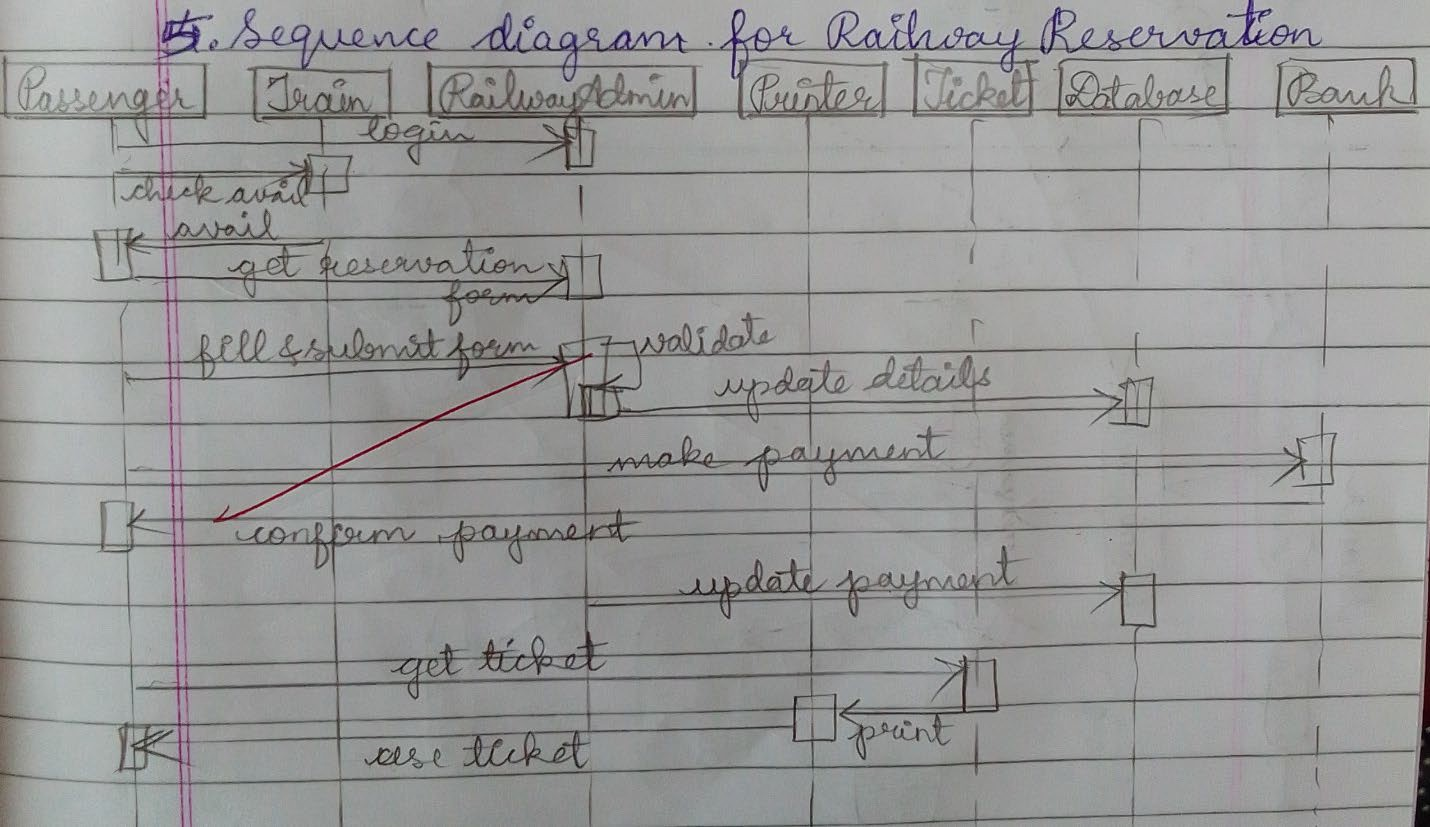 5. Sequence diagram for Railway Reservation
Passenger Train RailwayAdmin Printer Ticket Database Bank
login
check avail
avail
get reservation
form
fill & submit form validate
update details
make payment
confirm payment
update payment
get ticket
print
use ticket